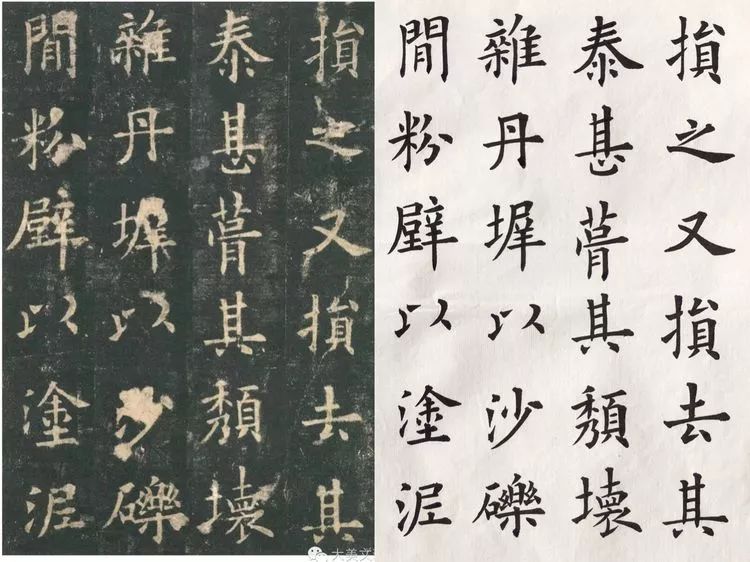 損之又損去其
泰甚葺其頹壞
雜丹墀以沙礫
閒粉壁以塗泥
大美文
損之又損去其
泰甚葺其頹壞
雜丹墀以沙礫
閒粉壁以塗泥